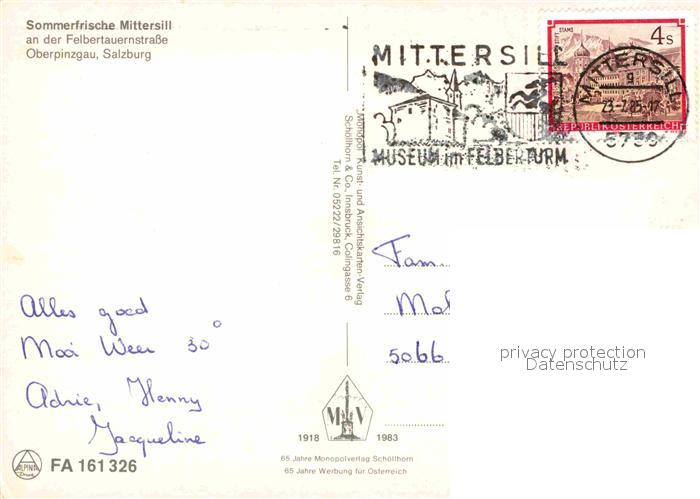 Sommerfrische Mittersill
an der Felbertauernstraße
Oberpinzgau, Salzburg
MITTERSILL
MUSEUM im FELBERTURM
STAMS
4s
REPUBLIK ÖSTERREICH
MITTERSILL
5730
„Monopol" Kunst- und Ansichtskarten-Verlag
Schöllhorn & Co., Innsbruck, Colingasse 6
Tel. Nr. 05222/29816
Alles goed
Mooi Weer 30°
Adrie, Henny
Jacqueline
Fam.
Mol
5066
privacy protection
Datenschutz
M V
1918 1983
65 Jahre Monopolverlag Schöllhorn
65 Jahre Werbung für Österreich
ALPINA
Druck
FA 161 326